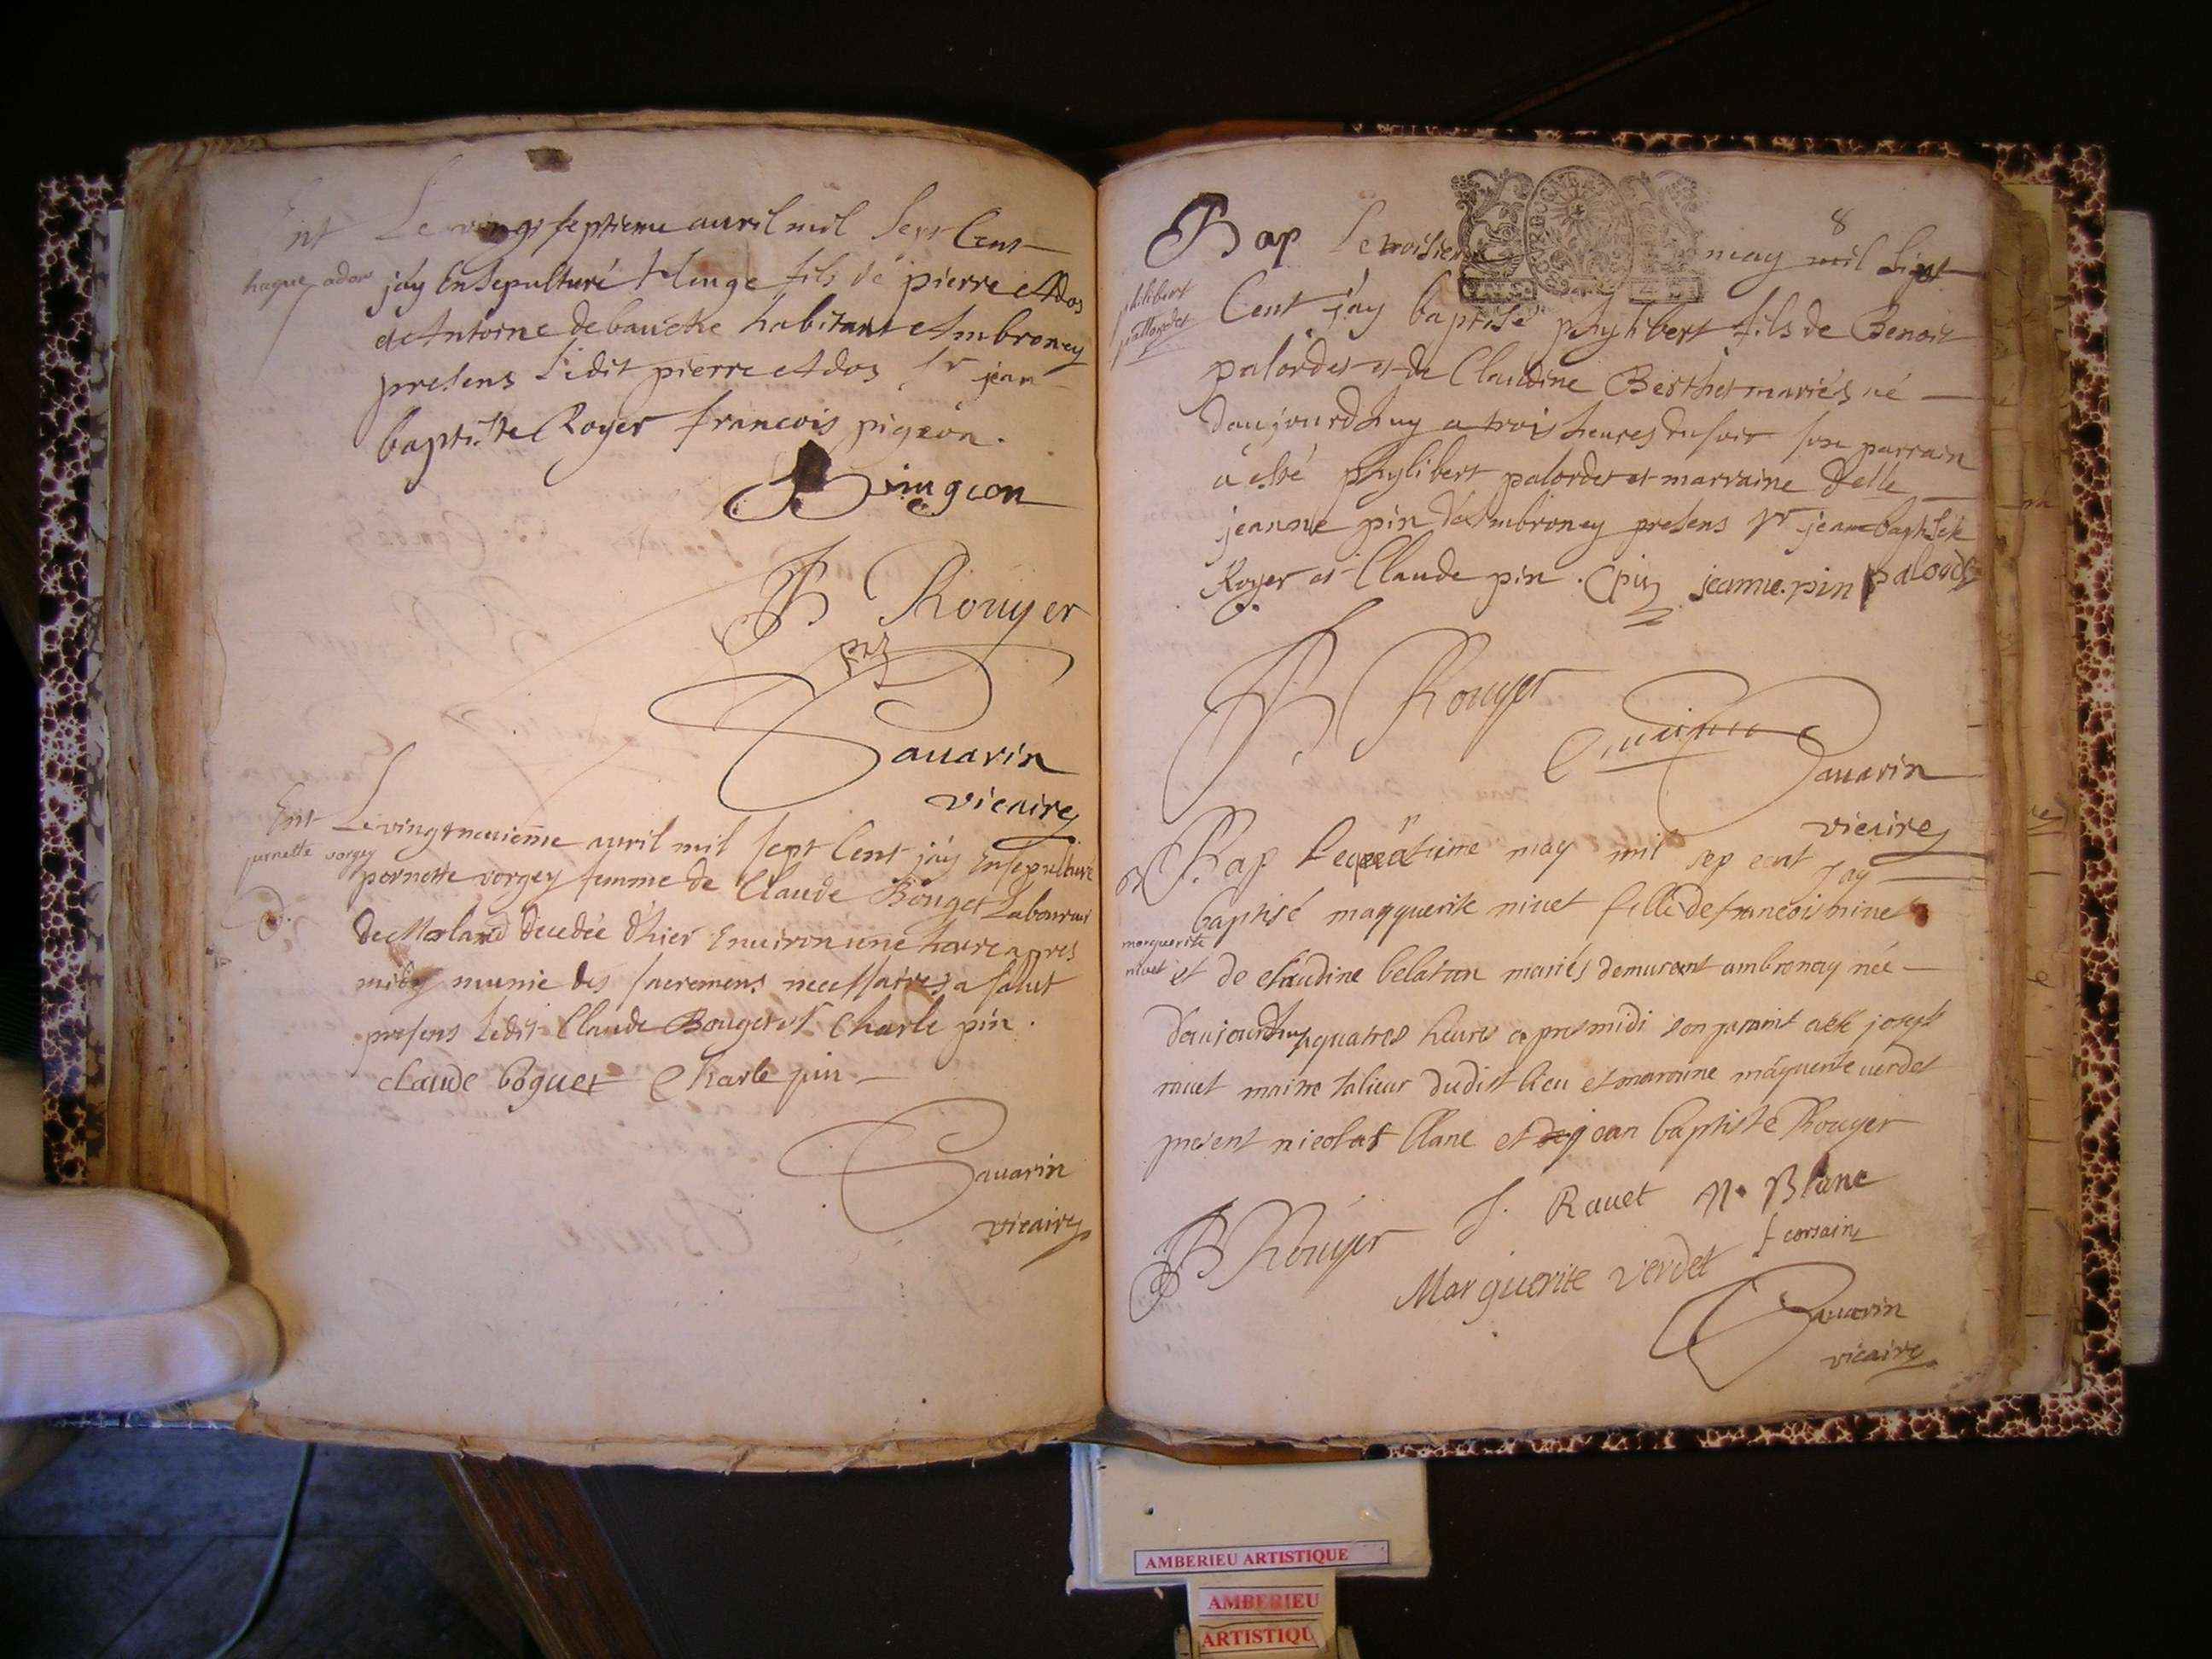 Ent Le vingt septieme auril mil sept Cent
jay Ensepulturé Huge fils de pierre Ados
et Antoine debauche habitant Ambroney
presens Ledit pierre Ados Sr jean
baptiste Royer francois pigeon.
pingeon
JB Rouyer
Sauarin
vicaire
Ent Le vingt neuieme auril mil sept Cent jay Ensepulturé
pernette vorgey
pernette vorgey femme de Claude Bouget Laboureur
de Morland decedée d'hier Enuiron une heure apres
midy munie des sacremens necessaires a salut
presens Ledit Claude Bouget et Charle pin.
claude boguet Charle pin
Sauarin
vicaire
8
Bap Le troisieme may mil sept
philibert
Cent jay baptisé phylibert fils de Benoit
palordet et de Claudine Berthet mariés né
daujourdhuy a trois heures du soir son parrain
a esté phylibert palordet et marraine Delle
jeanne pin d'Ambroney presens Sr jean baptiste
Royer et Claude pin. Cpin jeanne.pin palordet
JB Rouyer
Sauarin
vicaire
Bap Le quatrieme may mil sep cent jay
baptisé marguerite niuet fille de francois niuet
marguerite
niuet
et de claudine belatan mariés demurant ambronay née
daujourdhuy a quatres heures apres midi son paraint a este joseph
rauet maitre talieur dudist lieu et maraine marguerite uerdet
present nicolas blanc et jean baptiste Rouyer
JB Rouyer J. Rauet N. Blanc
f corsain
Marguerite verdet
Sauarin
vicaire
AMBERIEU ARTISTIQUE
AMBERIEU
ARTISTIQU